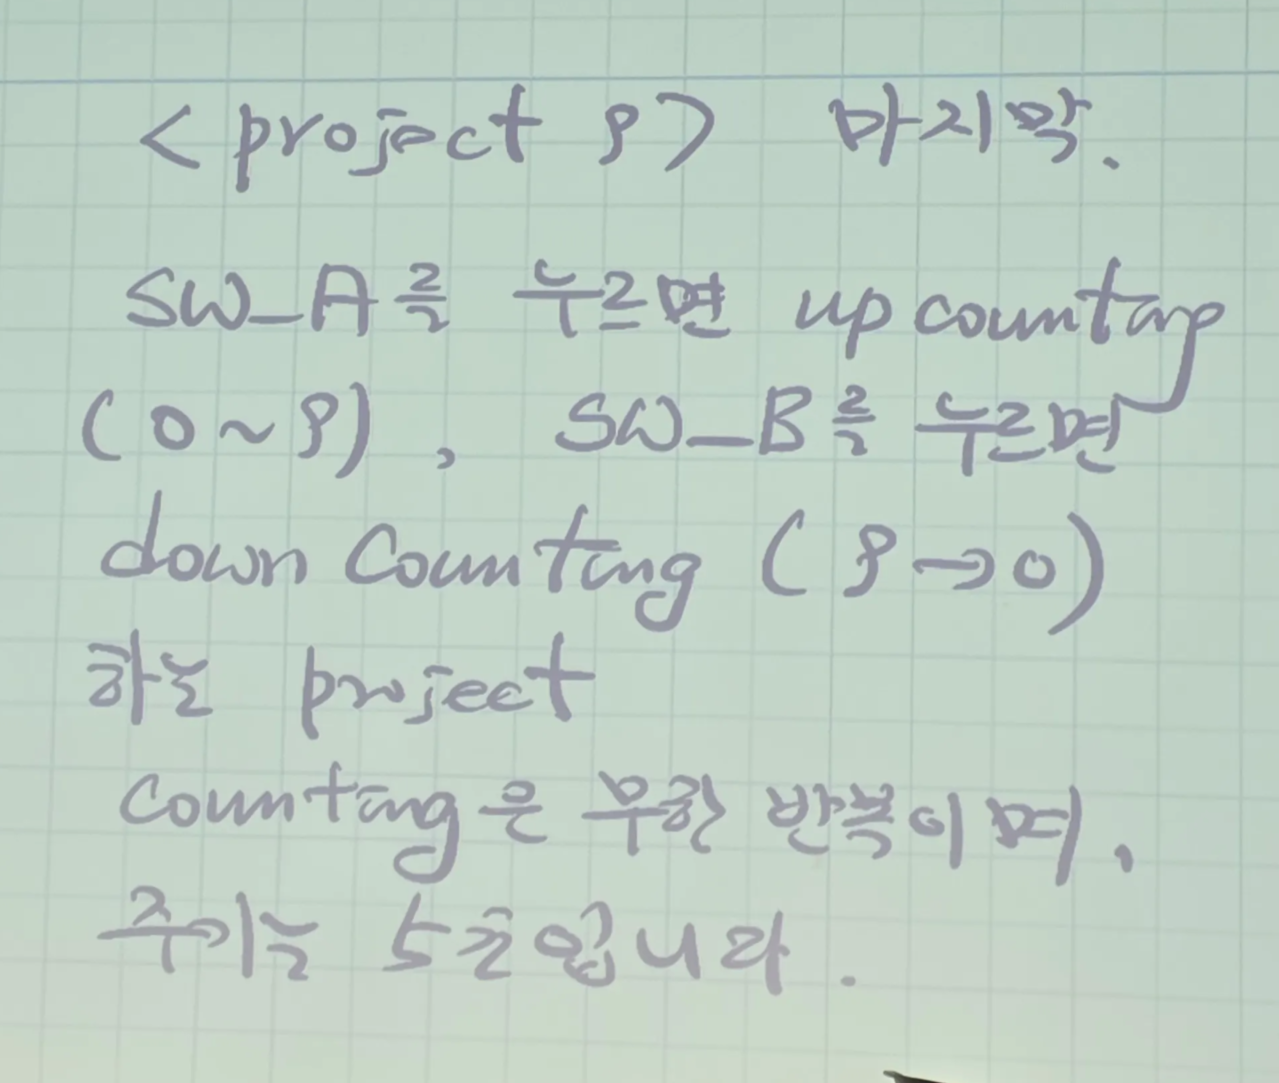 <project 9> 마지막.
SW_A를 누르면 up counting
(0~9), SW_B를 누르면
down counting (9→0)
하는 project
counting은 무한 반복이며,
주기는 5초입니다.